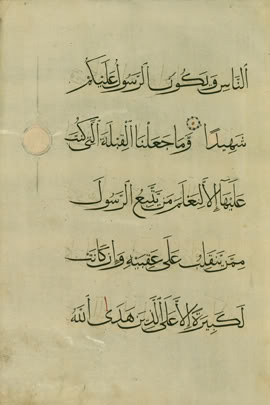 ٱلنَّاسِ وَيَكُونَ ٱلرَّسُولُ عَلَيْكُمْ
شَهِيدًا وَمَا جَعَلْنَا ٱلْقِبْلَةَ ٱلَّتِى كُنتَ
عَلَيْهَآ إِلَّا لِنَعْلَمَ مَن يَتَّبِعُ ٱلرَّسُولَ
مِمَّن يَنقَلِبُ عَلَىٰ عَقِبَيْهِ وَإِن كَانَتْ
لَكَبِيرَةً إِلَّا عَلَى ٱلَّذِينَ هَدَى ٱللَّهُ